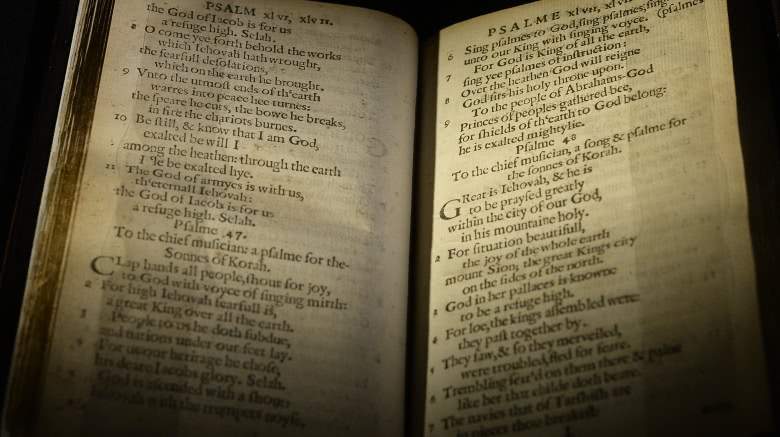 PSALM xlvi, xlvii.
the God of Iacob is for us
a refuge high. Selah.
8 O come yee forth behold the works
which Iehovah hath wrought,
the fearfull deſolations,
which on the earth he brought.
9 Vnto the utmoſt ends of th'earth
warres into peace hee turnes:
the ſpeare he cuts, the bowe he breaks,
in fire the chariots burnes.
10 Be ſtill, & know that I am God,
exalted be will I
among the heathen: through the earth
I'le be exalted hye.
11 The God of armyes is with us,
th'eternall Iehovah:
the God of Iacob is for us
a refuge high. Selah.
Pſalme 47.
To the chief muſician: a pſalme for the
Sonnes of Korah.
CLap hands all people, ſhout for joy,
to God with voyce of ſinging mirth:
2 For high Iehovah fearfull is,
a great King over all the earth.
3 People to us he doth ſubdue,
and nations under our feet lay.
4 For us our heritage he choſe,
his deare Iacobs glory. Selah.
5 God is aſcended with a ſhout:
Iehovah with the trumpets noyſe.
PSALME xlvii, xlviii.
6 Sing pſalmes to God, ſing pſalmes, ſing
unto our King with ſinging voyce. (pſalmes
7 For God is King of all the earth,
ſing yee pſalmes of inſtruction:
8 Over the heathen God will reigne
God ſits his holy throne upon.
9 To the people of Abrahams God
Princes of peoples gathered bee,
for ſhields of th'earth to God belong:
he is exalted mightylie.
Pſalme 48
To the chief muſician, a ſong & pſalme for
the ſonnes of Korah.
GReat is Iehovah, & he is
to be prayſed greatly
within the city of our God,
in his mountaine holy.
2 For ſituation beautifull,
the joy of the whole earth
mount Sion; the great Kings city
on the ſides of the north.
3 God in her pallaces is knowne
to be a refuge high.
4 For loe, the kings aſſembled were:
they paſt together by.
5 They ſaw, & ſo they merveiled,
were troubled, fled for feare.
6 Trembling ſeaz'd on them there & paine
like her that childe doth beare.
7 The navies that of Tarſhiſh are
in pieces thou breakeſt: